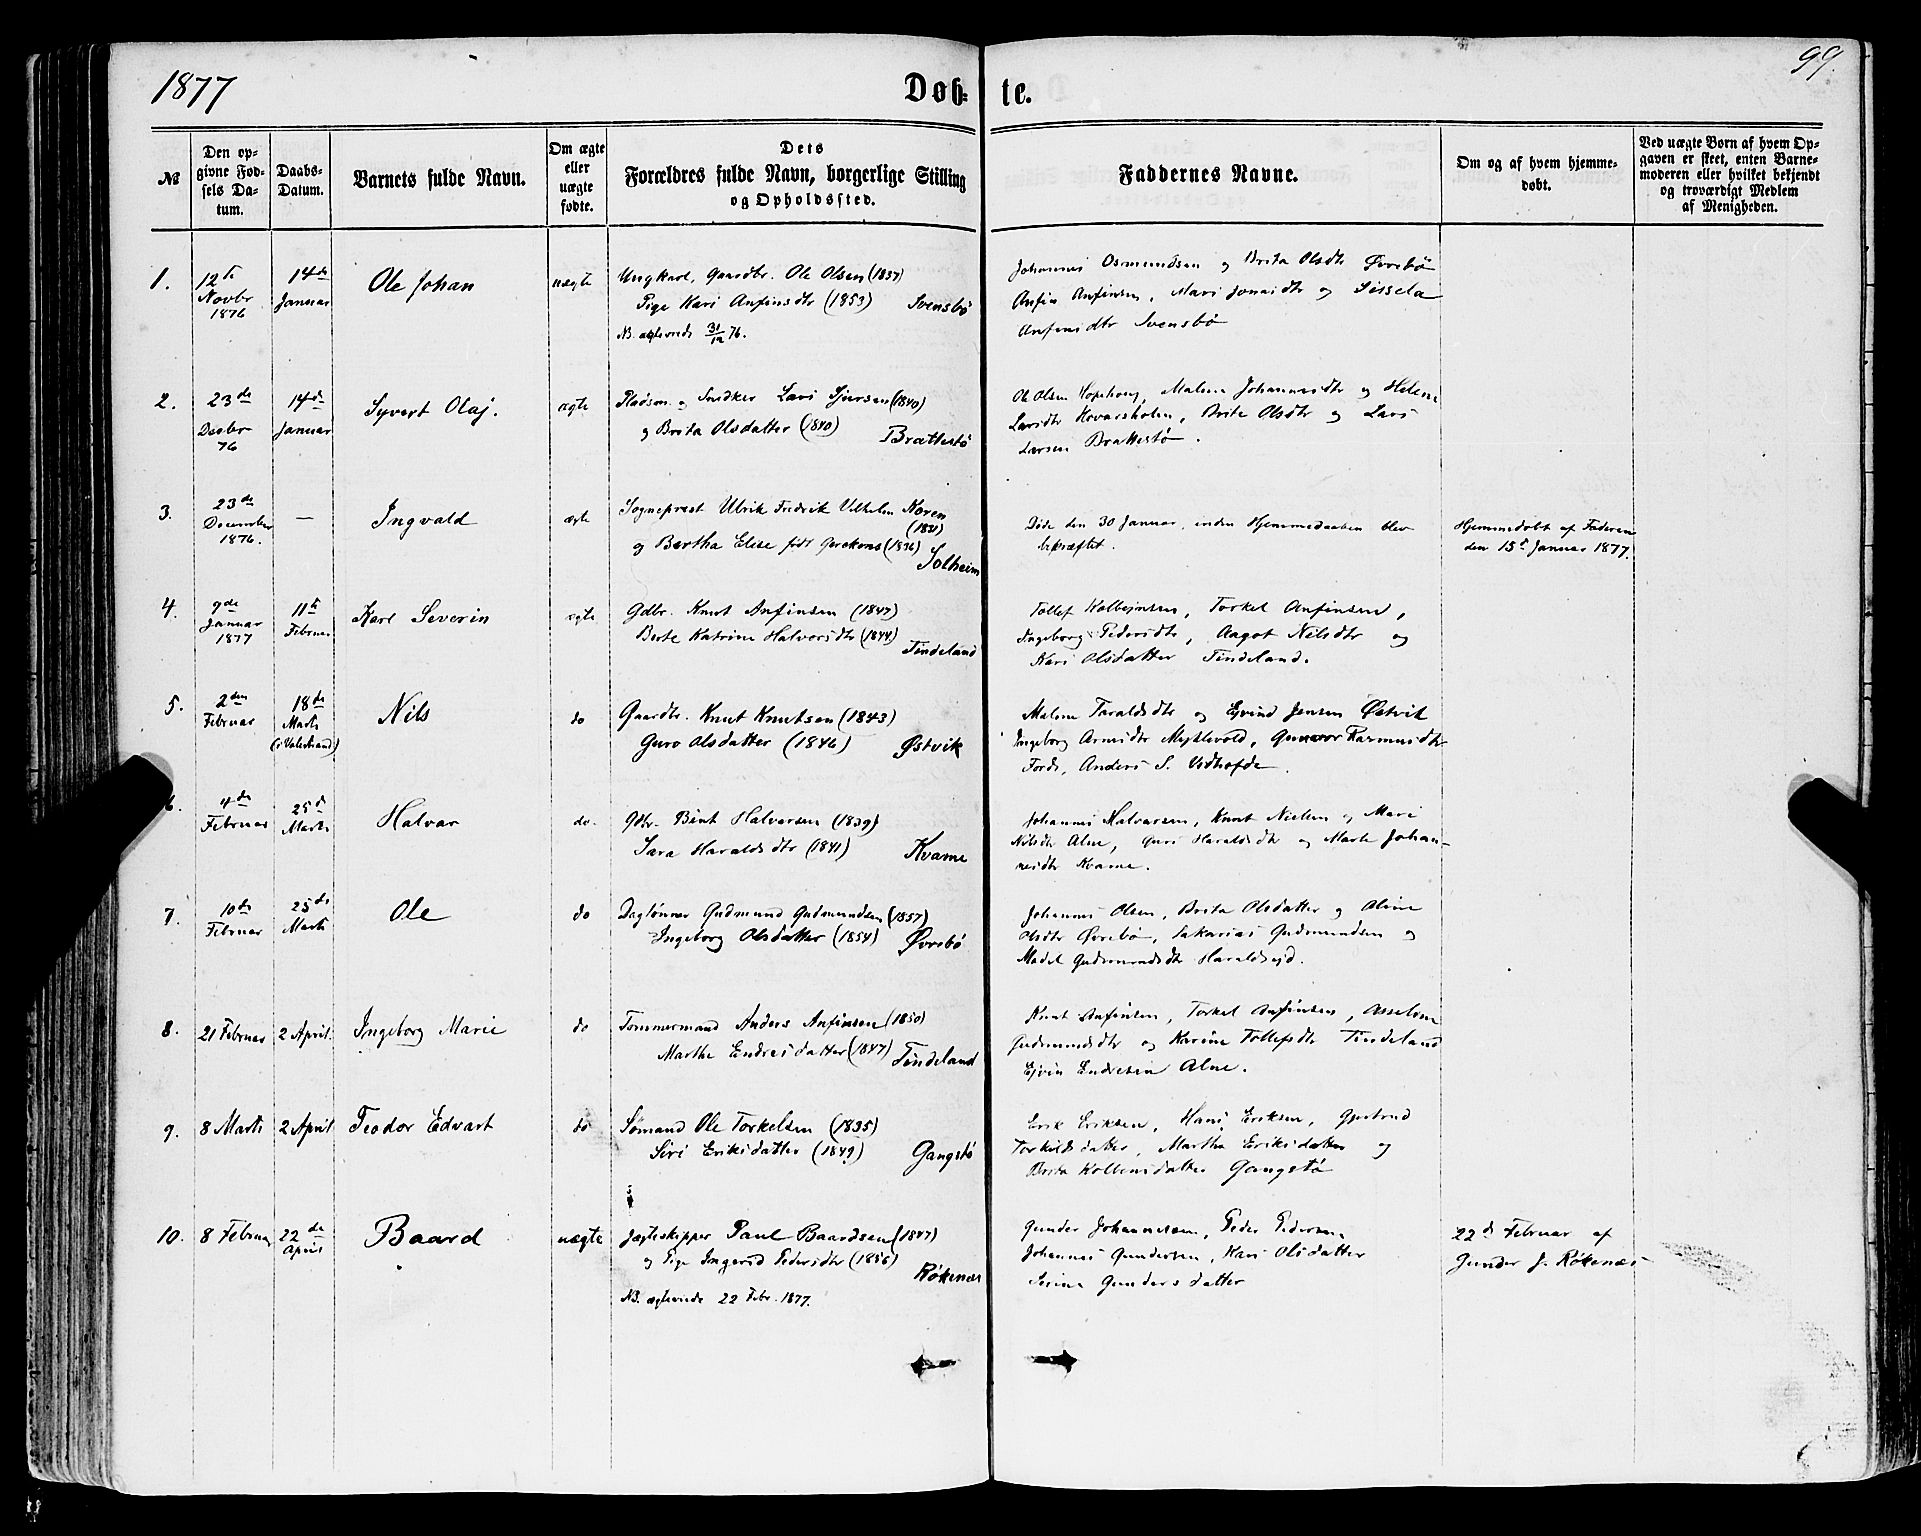 1877
Døb-
te.
99.
№
Den op-
givne Fød-
sels Da-
tum.
Daabs-
Datum.
Barnets fulde Navn.
Om ægte
eller
uægte
fødte.
Dets
Forældres fulde Navn, borgerlige Stilling
og Opholdssted.
Faddernes Navne.
Om og af hvem hjemme-
døbt.
Ved uægte Børn af hvem Op-
gaven er skeet, enten Barne-
moderen eller hvilket bekjendt
og troværdigt Medlem
af Menigheden.
1.
12te
Novbr
1876
14de
Januar
Ole Johan
uægte
Ungkarl, Gaardbr. Ole Olsen (1857)
Pige Kari Anfinsdtr (1853) Svensbø
NB. ægteviede 31/12 76.
Johannes Osmundsen og Brita Olsdtr Øvrebø
Anfin Anfinsen, Mari Jonsdtr og Sissela
Anfinsdtr Svensbø
2.
23de
Decbr
76
14de
Januar
Syvert Olaj.
ægte
Pladsm. og Snedker Lars Sjursen (1840)
og Brita Olsdatter (1840) Brattestø
Ole Olsen Hophoug, Malene Johannesdtr og Helene
Larsdtr Kovarsholm, Brite Olsdtr og Lars
Larsen Brattestø.
3.
23de
December
1876.
—
Ingvald
ægte
Sogneprest Ulrik Fredrik Vilhelm Koren
(1821)
og Bertha Elise født Gerckens (1836)
Solheim
Døde den 30 Januar, inden Hjemmedaaben blev
bekræftet.
Hjemmedøbt af Faderen
den 15de Januar 1877.
4.
9de
Januar
1877
11te
Februar
Karl Severin
ægte
Gdbr. Knut Anfinsen (1847)
Berte Katrine Halvorsdtr (1844)
Tindeland
Tollef Kolbejnsen, Torkel Anfinsen,
Ingeborg Pedersdtr, Aagot Nilsdtr og
Kari Olsdatter Tindeland.
5.
2den
Februar
18de
Marts
(i Valestrand)
Nils
do
Gaardbr. Knut Knutsen (1843)
Guro Olsdatter (1846) Østvik
Malene Taraldsdtr og Ejvind Jensen Østvik
Ingeborg Arnesdtr Myklevold, Gunvor Rasmusdtr
Førde, Anders S. Vedhofde.
6.
4de
Februar
25de
Marts
Halvar
do.
Gdbr. Bent Halvarsen (1839)
Sara Haraldsdtr (1841) Kvame
Johannes Halvarsen, Knut Nielsen og Mari
Nilsdtr Alne, Guri Haraldsdtr og Marte Johan-
nesdtr Kvame.
7.
10de
Februar
25de
Marts
Ole
do
Daglønner Gudmund Gudmundsen (1857)
Ingeborg Olsdatter (1854) Øvrebø
Johannes Olsen, Brita Olsdatter og Aline
Olsdtr Øvrebø, Sakarias Gudmundsen og
Madel Gudmundsdtr Haraldsejd.
8.
21 Februar
2 April.
Ingeborg Marie
do
Tømmermand Anders Anfinsen (1850)
Marthe Endresdatter (1847) Tindeland
Knut Anfinsen, Torkel Anfinsen, Asseline
Gudmundsdtr og Karine Tollefsdtr Tindeland
Ejvin Endresen Alne.
9.
8 Marts
2 April
Teodor Edvart
do
Sømand Ole Torkelsen (1835)
Siri Eriksdatter (1849) Gangstø
Erik Eriksen, Hans Eriksen, Gjertrud
Torkildsdatter, Martha Eriksdatter og
Brita Kolbensdatter Gangstø
10.
8 Februar
22de
April
Baard
uægte
Jægteskipper Paul Baardsen (1847)
og Pige Ingerid Pedersdtr (1856)
Røkenæs
NB. ægteviede 22 Febr. 1877.
Gunder Johannesen, Peder Pedersen,
Johannes Gundersen, Kari Olsdatter
Serine Gundersdatter
22de Februar af
Gunder J. Røkenæs